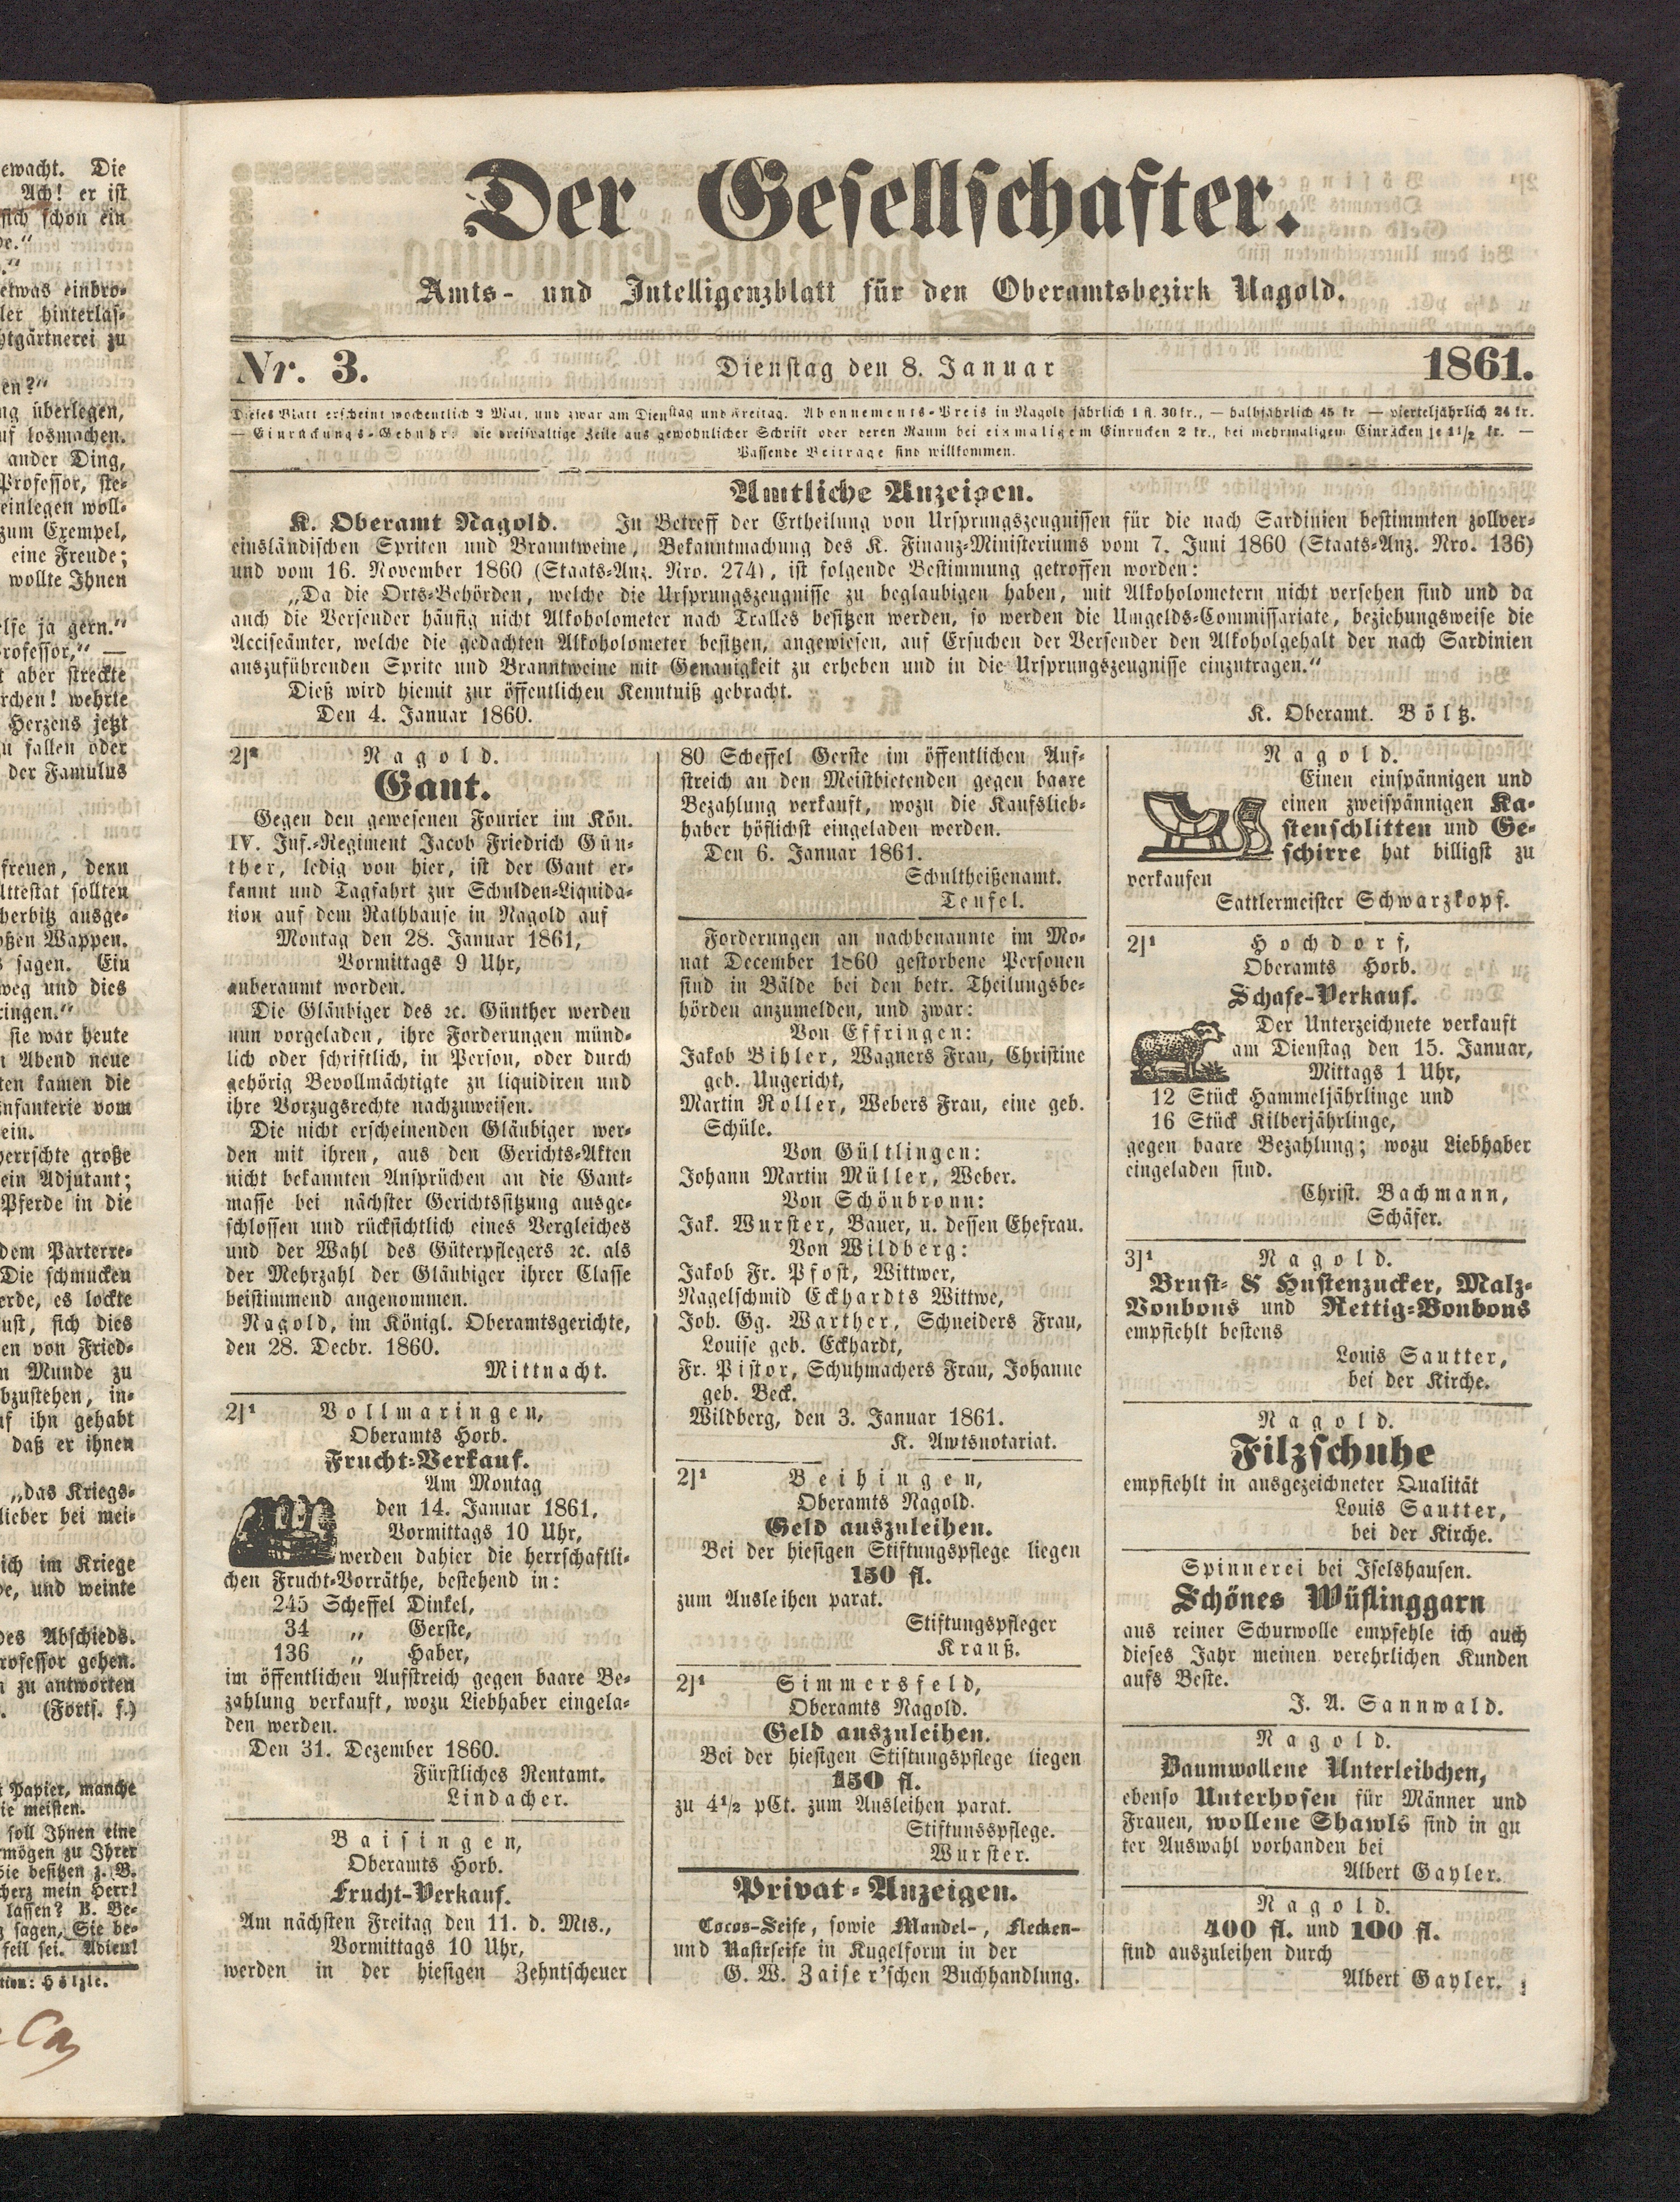 ewacht. Die
Ach! er ist
sich schon ein
de."
."
etwas einbro-
ler hinterlas-
htgärtnerei zu
en?"
ng überlegen,
uf losmachen.
ander Ding,
Professor, ste-
einlegen woll-
zum Exempel,
eine Freude;
wollte Ihnen
elfe ja gern."
rofessor," —
t aber streckte
rchen! wehrte
Herzens jetzt
u fallen oder
der Famulus
freuen, denn
Attestat sollten
herbitz ausge-
oßen Wappen.
s sagen. Ein
weg und dies
ringen."
sie war heute
n Abend neue
ten kamen die
nfanterie vom
ein.
herrschte große
ein Adjutant;
Pferde in die
dem Parterre-
Die schmucken
erde, es lockte
ust, sich dies
en von Fried-
n Munde zu
bzustehen, in-
uf ihn gehabt
daß er ihnen
„das Kriegs-
lieber bei mei-
ich im Kriege
e, und weinte
des Abschieds.
rofessor gehen.
n zu antworten
(Forts. f.)
t Papier, manche
ie meisten.
soll Ihnen eine
rmögen zu Ihrer
Sie besitzen z. B.
cherz mein Herr!
lassen? B. Be-
g sagen, Sie be-
feil sei. Adieu!
tion: Hölzle.
Der Gesellschafter.
Amts- und Intelligenzblatt für den Oberamtsbezirk Nagold.
Nr. 3. Dienstag den 8. Januar 1861.
Dieses Blatt erscheint wochentlich 2 Mal, und zwar am Dienstag und Freitag. Abonnements-Preis in Nagold jährlich 1 fl. 30 kr., — halbjährlich 45 kr — vierteljährlich 24 kr.
— Einrückungs-Gebühr: die dreispaltige Zeile aus gewohnlicher Schrift oder deren Raum bei einmaligem Einrucken 2 kr., bei mehrmaligem Einrücken je 1½ kr. —
Passende Beitrage sind willkommen.
Amtliche Anzeigen.
K. Oberamt Nagold. In Betreff der Ertheilung von Ursprungszeugnissen für die nach Sardinien bestimmten zollver-
einsländischen Spriten und Branntweine, Bekanntmachung des K. Finanz-Ministeriums vom 7. Juni 1860 (Staats-Anz. Nro. 136)
und vom 16. November 1860 (Staats-Anz. Nro. 274), ist folgende Bestimmung getroffen worden:
„Da die Orts-Behörden, welche die Ursprungszeugnisse zu beglaubigen haben, mit Alkoholometern nicht versehen sind und da
auch die Versender häufig nicht Alkoholometer nach Tralles besitzen werden, so werden die Umgelds-Commissariate, beziehungsweise die
Acciseämter, welche die gedachten Alkoholometer besitzen, angewiesen, auf Ersuchen der Versender den Alkoholgehalt der nach Sardinien
auszuführenden Sprite und Branntweine mit Genauigkeit zu erheben und in die Ursprungszeugnisse einzutragen."
Dieß wird hiemit zur öffentlichen Kenntniß gebracht.
Den 4. Januar 1860. K. Oberamt. Böltz.
2]² Nagold.
Gant.
Gegen den gewesenen Fourier im Kön.
IV. Inf.-Regiment Jacob Friedrich Gün-
ther, ledig von hier, ist der Gant er-
kannt und Tagfahrt zur Schulden-Liquida-
tion auf dem Rathhause in Nagold auf
Montag den 28. Januar 1861,
Vormittags 9 Uhr,
anberaumt worden.
Die Gläubiger des ꝛc. Günther werden
nun vorgeladen, ihre Forderungen münd-
lich oder schriftlich, in Person, oder durch
gehörig Bevollmächtigte zu liquidiren und
ihre Vorzugsrechte nachzuweisen.
Die nicht erscheinenden Gläubiger wer-
den mit ihren, aus den Gerichts-Akten
nicht bekannten Ansprüchen an die Gant-
masse bei nächster Gerichtssitzung ausge-
schlossen und rücksichtlich eines Vergleiches
und der Wahl des Güterpflegers ꝛc. als
der Mehrzahl der Gläubiger ihrer Classe
beistimmend angenommen.
Nagold, im Königl. Oberamtsgerichte,
den 28. Decbr. 1860.
Mittnacht.
2]¹ Vollmaringen,
Oberamts Horb.
Frucht-Verkauf.
Am Montag
den 14. Januar 1861,
Vormittags 10 Uhr,
werden dahier die herrschaftli-
chen Frucht-Vorräthe, bestehend in:
245 Scheffel Dinkel,
34 „ Gerste,
136 „ Haber,
im öffentlichen Aufstreich gegen baare Be-
zahlung verkauft, wozu Liebhaber eingela-
den werden.
Den 31. Dezember 1860.
Fürstliches Rentamt.
Lindacher.
Baisingen,
Oberamts Horb.
Frucht-Verkauf.
Am nächsten Freitag den 11. d. Mts.,
Vormittags 10 Uhr,
werden in der hiesigen Zehntscheuer
80 Scheffel Gerste im öffentlichen Auf-
streich an den Meistbietenden gegen baare
Bezahlung verkauft, wozu die Kaufslieb-
haber höflichst eingeladen werden.
Den 6. Januar 1861.
Schultheißenamt.
Teufel.
Forderungen an nachbenannte im Mo-
nat December 1860 gestorbene Personen
sind in Bälde bei den betr. Theilungsbe-
hörden anzumelden, und zwar:
Von Effringen:
Jakob Bihler, Wagners Frau, Christine
geb. Ungericht,
Martin Roller, Webers Frau, eine geb.
Schüle.
Von Gültlingen:
Johann Martin Müller, Weber.
Von Schönbronn:
Jak. Wurster, Bauer, u. dessen Ehefrau.
Von Wildberg:
Jakob Fr. Pfost, Wittwer,
Nagelschmid Eckhardts Wittwe,
Joh. Gg. Warther, Schneiders Frau,
Louise geb. Eckhardt,
Fr. Pistor, Schuhmachers Frau, Johanne
geb. Beck.
Wildberg, den 3. Januar 1861.
K. Amtsnotariat.
2]¹ Beihingen,
Oberamts Nagold.
Geld auszuleihen.
Bei der hiesigen Stiftungspflege liegen
150 fl.
zum Ausleihen parat.
Stiftungspfleger
Krauß.
2]¹ Simmersfeld,
Oberamts Nagold.
Geld auszuleihen.
Bei der hiesigen Stiftungspflege liegen
150 fl.
zu 4½ pCt. zum Ausleihen parat.
Stiftunsspflege.
Wurster.
Privat-Anzeigen.
Cocos-Seife, sowie Mandel-, Flecken-
und Rastrseife in Kugelform in der
G. W. Zaiser'schen Buchhandlung.
Nagold.
Einen einspännigen und
einen zweispännigen Ka-
stenschlitten und Ge-
schirre hat billigst zu
verkaufen
Sattlermeister Schwarzkopf.
2]¹ Hochdorf,
Oberamts Horb.
Schafe-Verkauf.
Der Unterzeichnete verkauft
am Dienstag den 15. Januar,
Mittags 1 Uhr,
12 Stück Hammeljährlinge und
16 Stück Kilberjährlinge,
gegen baare Bezahlung; wozu Liebhaber
eingeladen sind.
Christ. Bachmann,
Schäfer.
3]¹ Nagold.
Brust- & Hustenzucker, Malz-
Bonbons und Rettig-Bonbons
empfiehlt bestens
Louis Sautter,
bei der Kirche.
Nagold.
Filzschuhe
empfiehlt in ausgezeichneter Qualität
Louis Sautter,
bei der Kirche.
Spinnerei bei Iselshausen.
Schönes Wüflinggarn
aus reiner Schurwolle empfehle ich auch
dieses Jahr meinen verehrlichen Kunden
aufs Beste.
J. A. Sannwald.
Nagold.
Baumwollene Unterleibchen,
ebenso Unterhosen für Männer und
Frauen, wollene Shawls sind in gu
ter Auswahl vorhanden bei
Albert Gayler.
Nagold.
400 fl. und 100 fl.
sind auszuleihen durch
Albert Gayler.